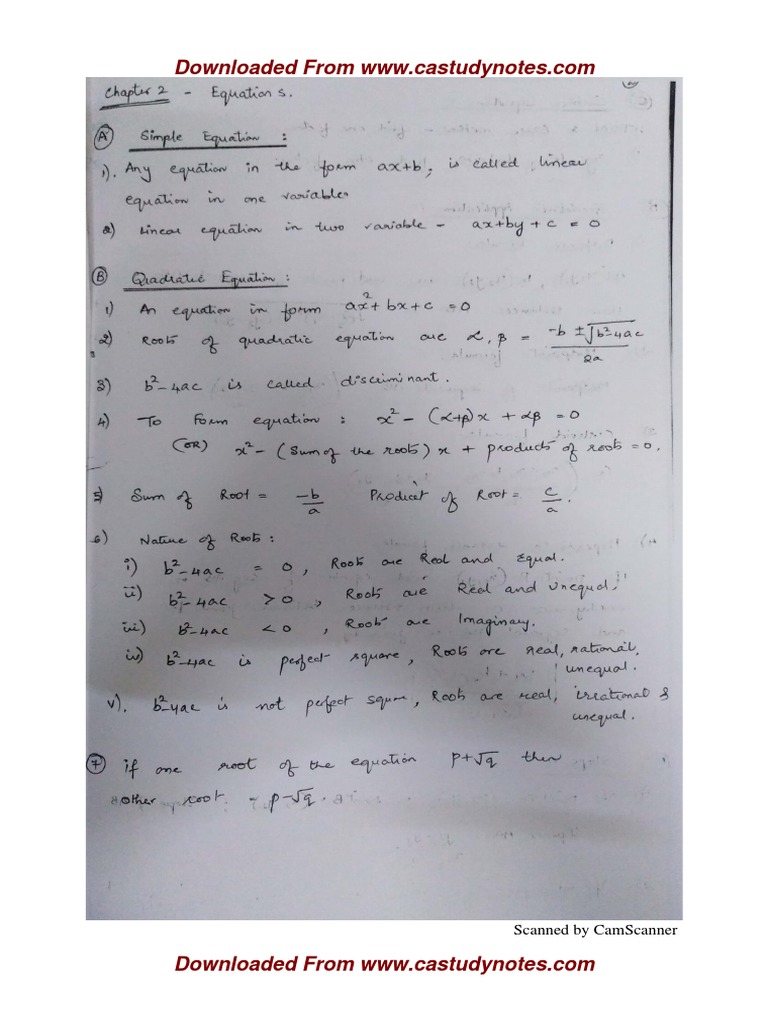 Downloaded From www.castudynotes.com
Chapter 2 - Equations.
(A) Simple Equation :
1). Any equation in the form ax+b, is called linear
equation in one variables
2) Linear equation in two variable - ax+by+c = 0
(B) Quadratic Equation :
1) An equation in form ax²+bx+c = 0
2) Roots of quadratic equation are α, β = -b ± √b²-4ac / 2a
3) b²-4ac is called discriminant.
4) To Form equation : x² - (α+β)x + αβ = 0
(OR) x² - (Sum of the roots) x + products of roots = 0.
5) Sum of Root = -b/a Product of Root = c/a.
6) Nature of Roots :
i) b²-4ac = 0, Roots are Real and Equal.
ii) b²-4ac > 0, Roots are Real and unequal.
iii) b²-4ac < 0, Roots are Imaginary.
iv) b²-4ac is perfect square, Roots are real, rational,
unequal.
v). b²-4ac is not perfect square, Roots are real, irrational &
unequal.
(7) if one root of the equation p+√q then
other root - p-√q.
Scanned by CamScanner
Downloaded From www.castudynotes.com